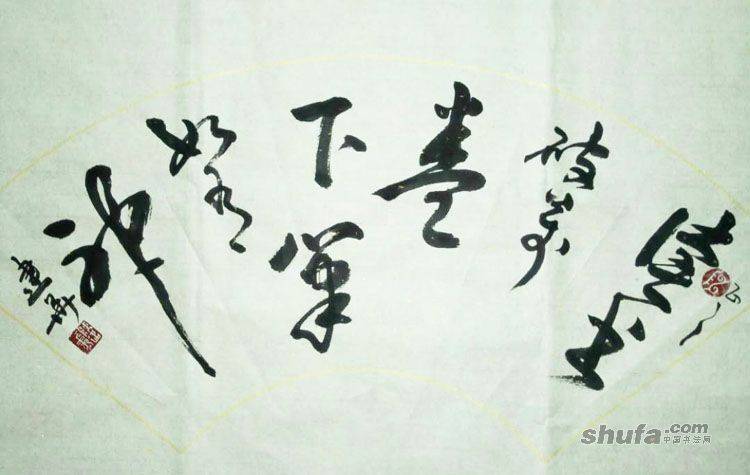 读书
破万
卷
下笔
如有
神
shufa.com
中国书法网